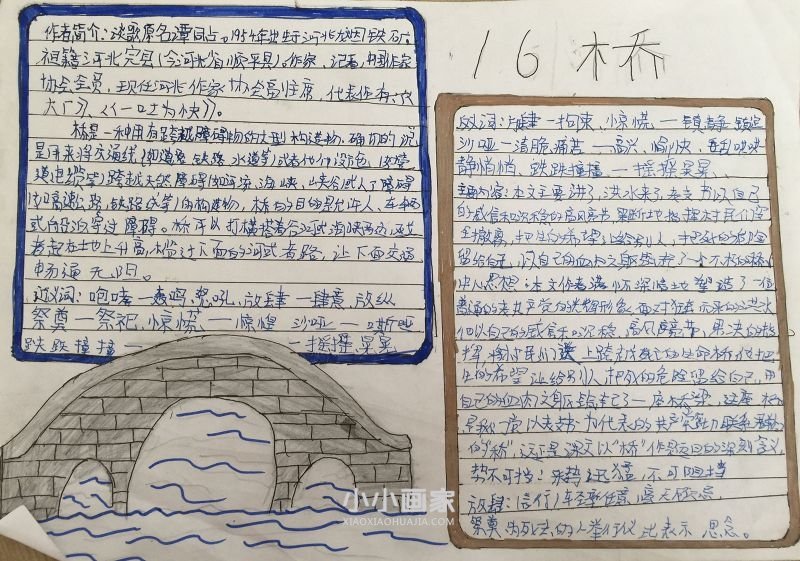 16 桥
作者简介：谈歌原名谭同占。1954年出生于河北龙烟铁矿。
祖籍河北完县（今河北省顺平县）。作家、记者，中国作家
协会会员，现任河北作家协会副主席，代表作有《大
大厂》、《一口之为快》。
桥是一种用有跨越障碍物的大型构造物，确切的说
是用来将交通线（如道路、铁路、水道等）或者其他设施（如管
道电缆等）跨越天然障碍（如河流、海峡、峡谷）或人工障碍
（如高速公路、铁路线等）的构建物，桥的目的是允许人、车辆
或船泊穿过障碍。桥可以打横搭着谷河或海峡两边，又或
者起在地上升高，槛过下面的河或者路，让下面交通
畅通无阻。
近义词：咆哮一轰鸣、怒吼，放肆一肆意、放纵
祭奠一祭祀，惊慌一惊惶 沙哑一嘶哑
跌跌撞撞一一摇摇晃晃
反词：放肆一拘束、惊慌一镇静 镇定
沙哑一清脆 痛苦一高兴、愉快、乱哄哄
静悄悄、跌跌撞撞一摇摇晃晃、
主要内容：本文主要讲了，洪水来了，老支书以自己
的威信和沉稳的高风亮节，果断地指挥村民们安
全撤离，把生的希望让给别人，把死的危险
留给自己，以自己的血肉之躯
中心思想：本文作者满怀深情地塑造了一位
普通的老共产党员的光辉形象，面对狂奔而来的洪水，
他以自己的威信和沉稳、高风亮节、果决的指
挥，将村民们送上跨越死亡的生命桥。他把
生的希望让给别人，把死的危险留给自己，用
自己的血肉之躯
是我一党以支书为代表的共产党
的“桥”，这正是课文以“桥”作为题目的深刻含义
势不可挡：来势迅猛，不可阻挡
放肆：言行轻率任意，毫无顾忌
祭奠 为死去的人举行仪式表示思念。
小小画家
XIAOXIAOHUAJIA.COM